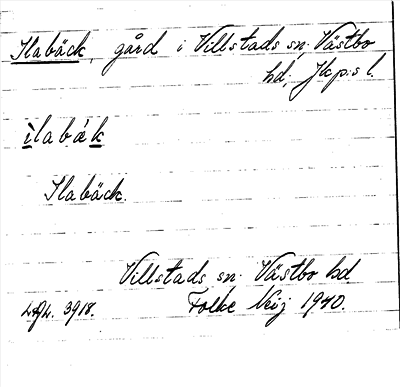 Ilabäck, gård i Villstads sn, Västbo
hd, Jkp:s l.
ìlabǽk
Ilabäck.
Villstads sn. Västbo hd
3918. Folke 1940.